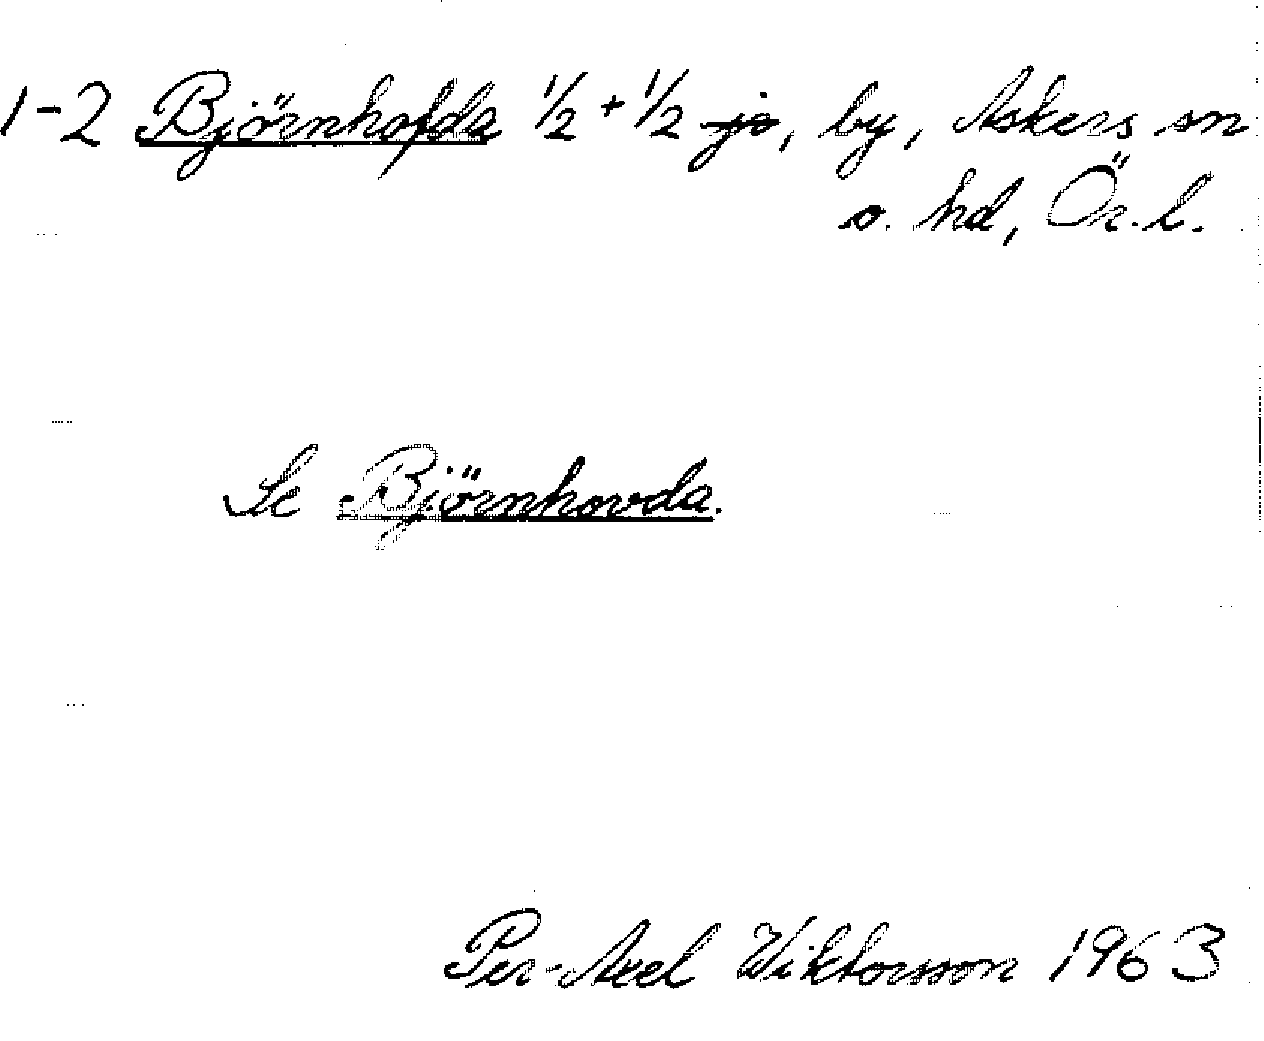 1-2 Björnhofda 1/2 + 1/2 js, by, Askers sn
o. hd, Ör. l.
Se Björnhovda.
Per-Axel Wiktorsson 1963